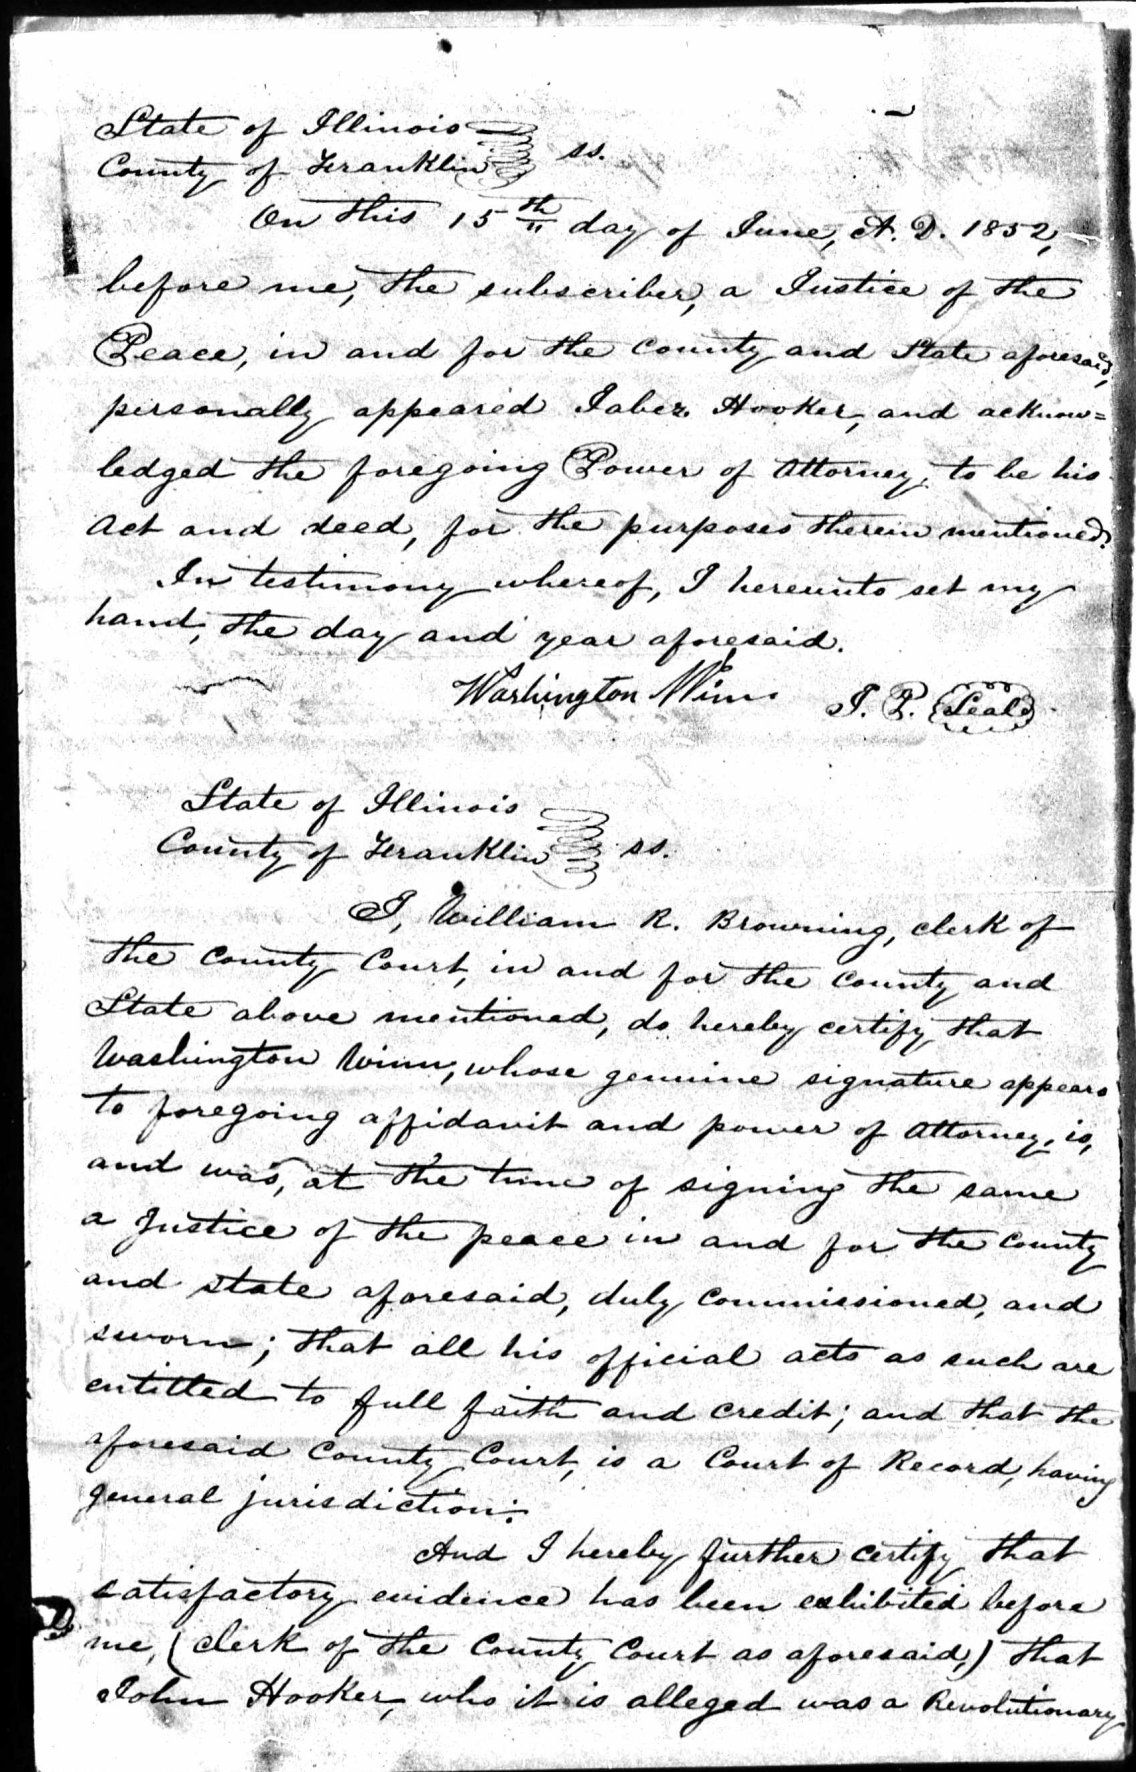 State of Illinois
County of Franklin ss.
On this 15th day of June, A. D. 1852,
before me, the subscriber, a Justice of the
Peace, in and for the County and State aforesaid,
personally appeared Jabez Hooker, and acknow=
ledged the foregoing Power of Attorney, to be his
act and deed, for the purposes therein mentioned.
In testimony whereof, I hereunto set my
hand, the day and year aforesaid.
Washington Winn J. P. Seal
State of Illinois
County of Franklin ss.
I, William R. Browning, clerk of
the County Court, in and for the County and
State above mentioned, do hereby certify that
Washington Winn, whose genuine signature appears
to foregoing affidavit and power of attorney, is,
and was, at the time of signing the same
a Justice of the peace in and for the County
and state aforesaid, duly commissioned, and
sworn; that all his official acts as such are
entitled to full faith and credit; and that the
aforesaid County Court, is a Court of Record, having
general jurisdiction:
And I hereby further certify that
satisfactory evidence has been exhibited before
me, (clerk of the County Court as aforesaid,) that
John Hooker, who it is alleged was a Revolutionary